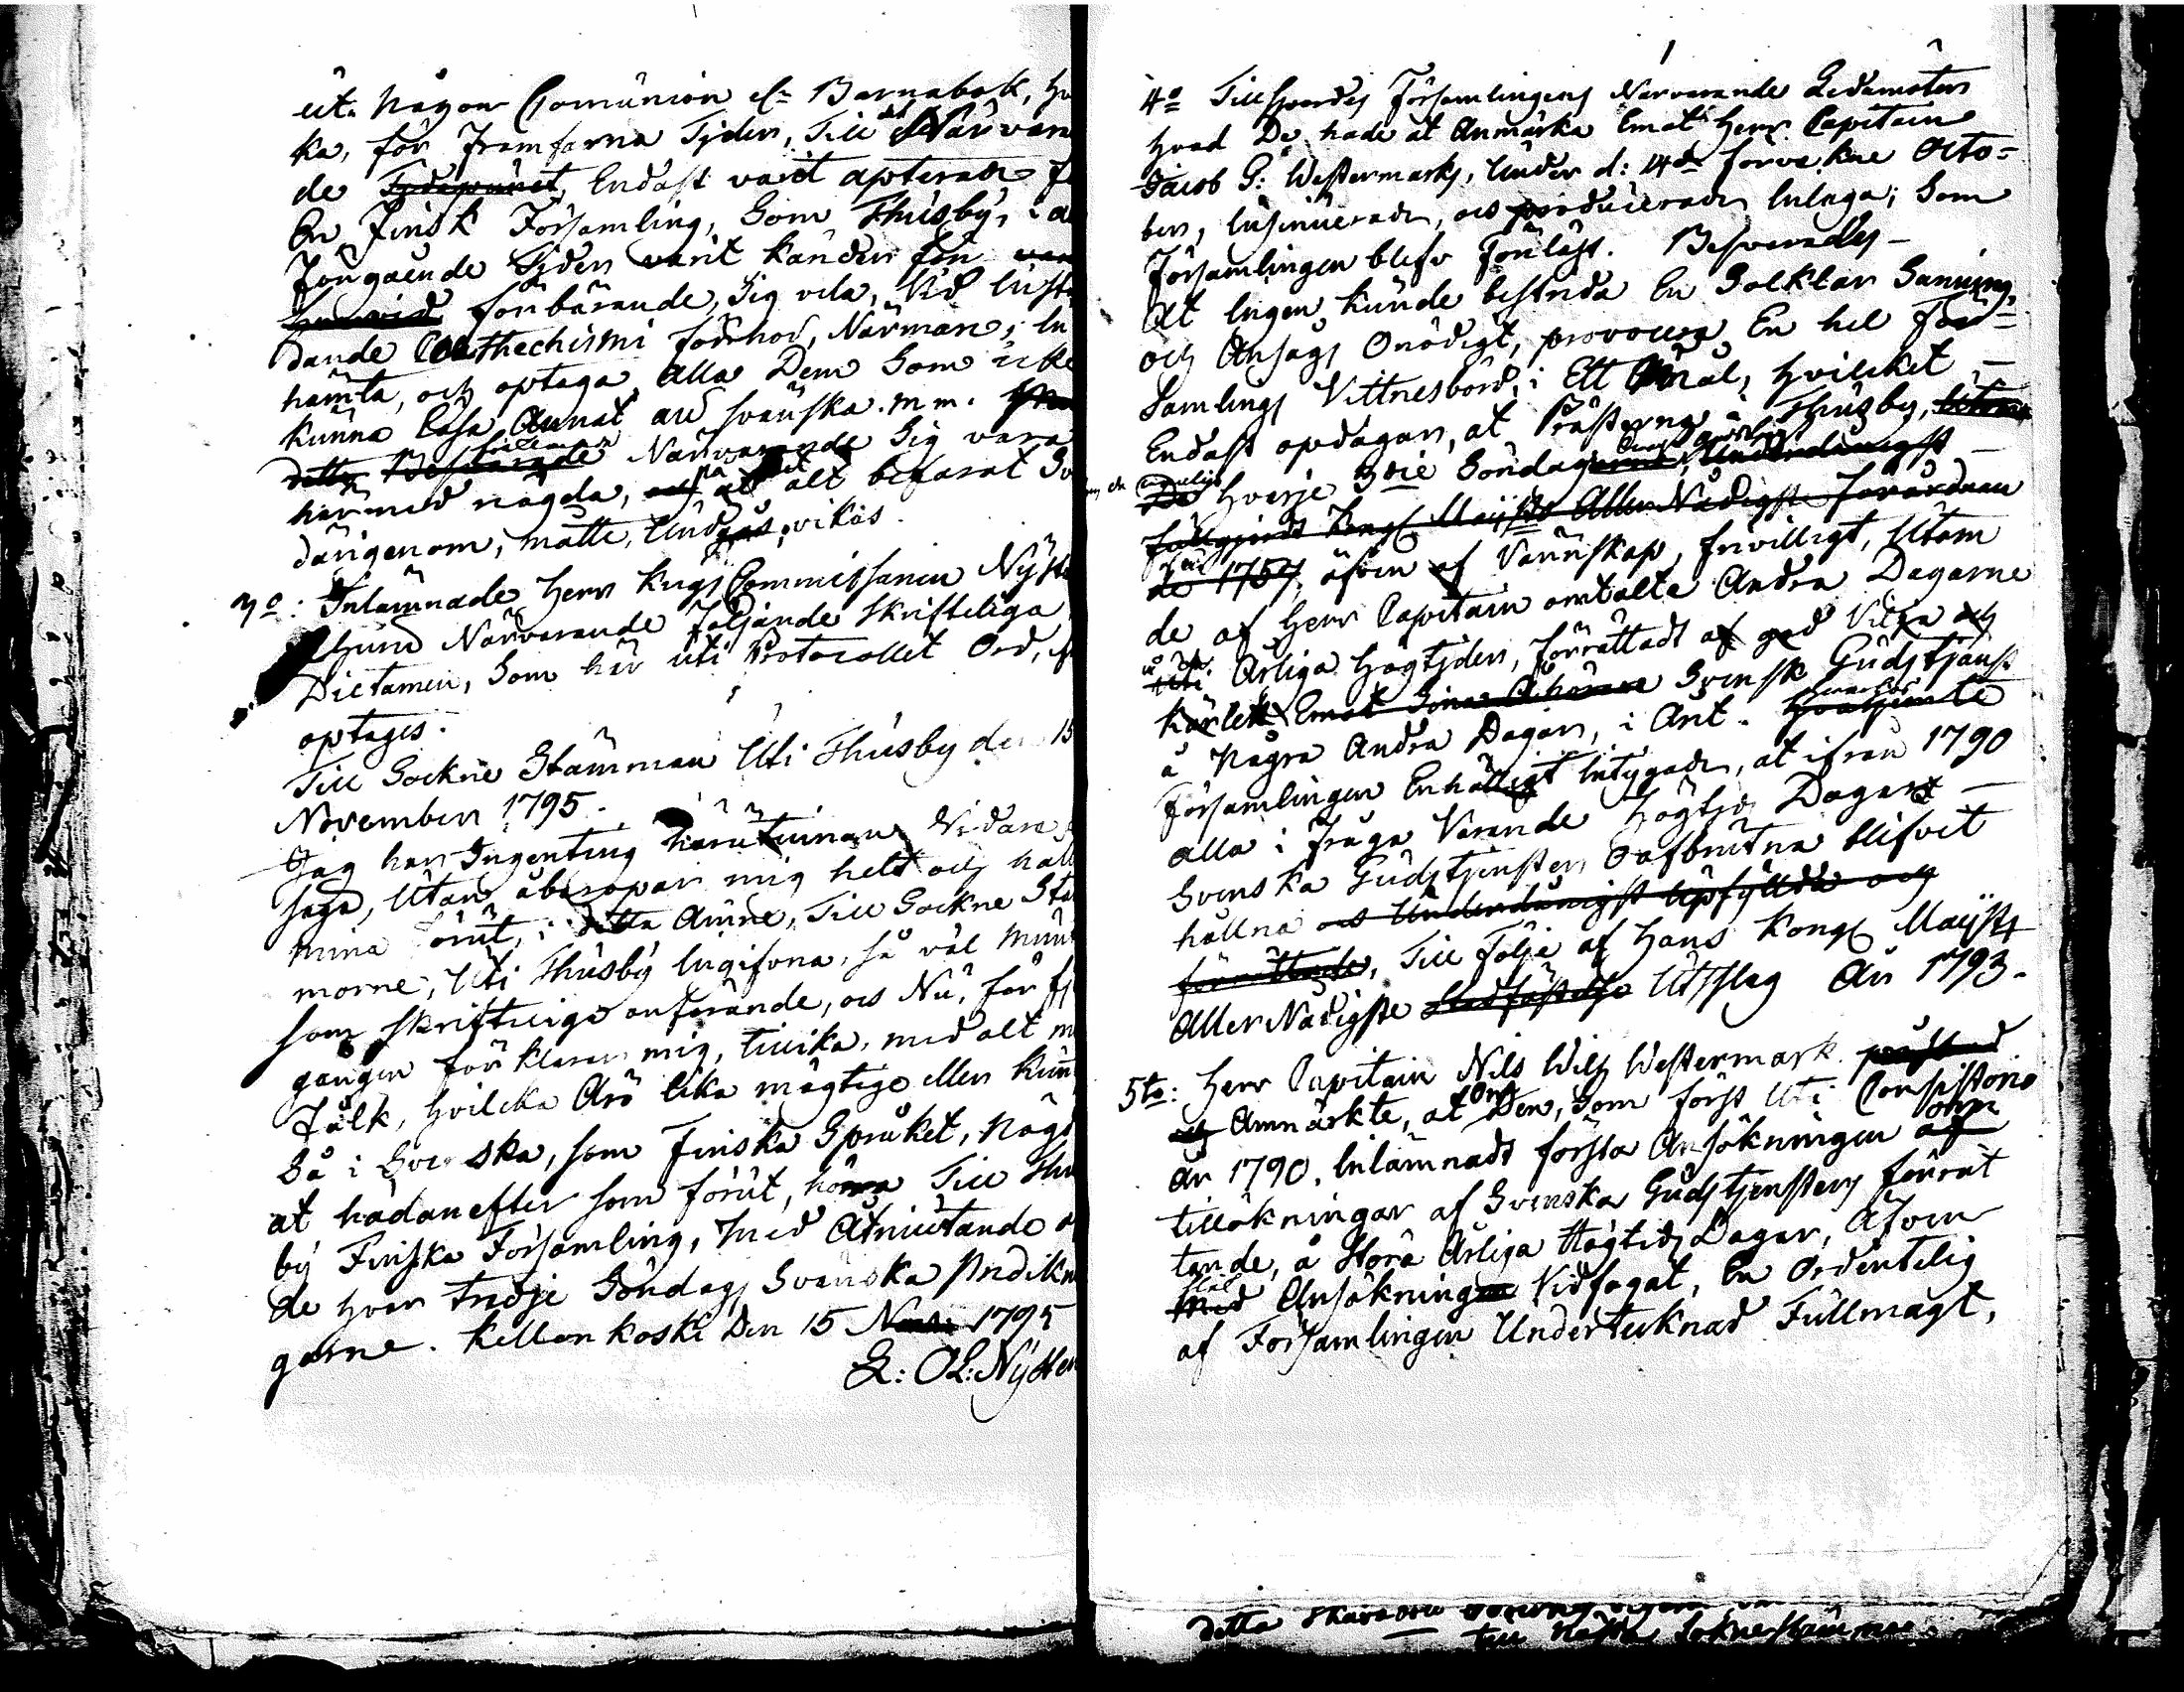 ut. någon Comunion el. Barnabok, hv
ka, för framfarna Tjder, Till det Närvaran
de Tydepunct, Endast varit apterade f
En Finsk Församling, Som Thusby, i a
föregående Tjder varit känder för
förbärande, Sig vela, Vid
dande Cathechismi förhör, Närmare,
hämta, och optaga alla Dem Som icke
kunna läsa Annat än svänska m m.
detta Närvarande Sig vara
härmed nögda, och på det at alt befarat
därigenom, måtte, Undgås, vikas.
3o: Inlämnade Herr Krigs Commissarien Nyste
följande skrifteliga
Dictamen, Som här uti Protocollet Ord,
optages.
Till Sockne Stämman Uti Thusby den 15
November 1795.
Jag har Ingenting härutinnan Vidare
säga, Utan åberopar mig helt och håll
mina förut, i detta ämne, Till Sockne Stä
morne, Uti Thusby Ingifvna, så väl Munt
som skrifteliga anförande, och Nu, för
gången förklarar mig, tillika, med alt m
Fålk, hvilcka Äro lika mägtige eller kun
Så i Svenska, som Finska Språket, Nög
at hädanefter som förut, höra Till Thus
by Finska Församling, med Åtniutande a
de hvar tredje Söndags Svenska Predikn
garne. Kellankoski Den 15 Novr 1795
L: OL: Nyste
4o Tillspordes Församlingens Närvarande Ledamöter
hvad De hade at Anmärka Emot Herr Capitain
Jacob G: Westermarks, Under d: 14de förvekne Octo=
ber, Insinuerade, och producerade Inlaga; Som
Församlingen blef Föreläst. Besvarades –
At Ingen kunde bestrida En Solklar Sanning,
och Ansågs Onödigt, provocera En hel För=
samlings Vittnesbörd, i Ett Mål, hvilcket –
Endast opdagar, at Prästerne i Thusby, Utom
de hvarje 3die Söndagarne, Underdånigst –
fullgjordt Kongl Maijsts Aller Nådigste Förordnan
de 1757, äfven af Vännskap, frivilligt, Utom
de af Herr Capitain omtalte Andra Dagarne
uti Årliga Högtjden, förrättadt af god Vilja och
Kärlek Emot Sina Åhörare Svensk Gudstjänst
å Några Andra Dagar, i Året. Hvarjemte
Församlingen Enhälligt Intygade, at ifrån 1790
alla i fråga Varande högtjds Dagars –
Svenska Gudstjenster Oafbrutna blifvit
hållna och Underdånigst Upfyllda och
förrättade, Till Följe af Hans Kongl Maijsts
Aller Nådigste Stadfästelse Utslag År 1793.
5to: Herr Capitain Nils Wilh Westermark påstod
och Anmärkte, at Den, Som först Uti Consistorio
År 1790. Inlämnadt första Ansökningen af om
tillökningar af Svenska Gudstjensters förrät
tande, å Stora Årliga Högtids Dagar, Äfven
Med Ansökningen Vidfogat, En Ordentelig
af Församlingen Undertecknad Fullmagt,
detta
till Nästa Soknestämma.